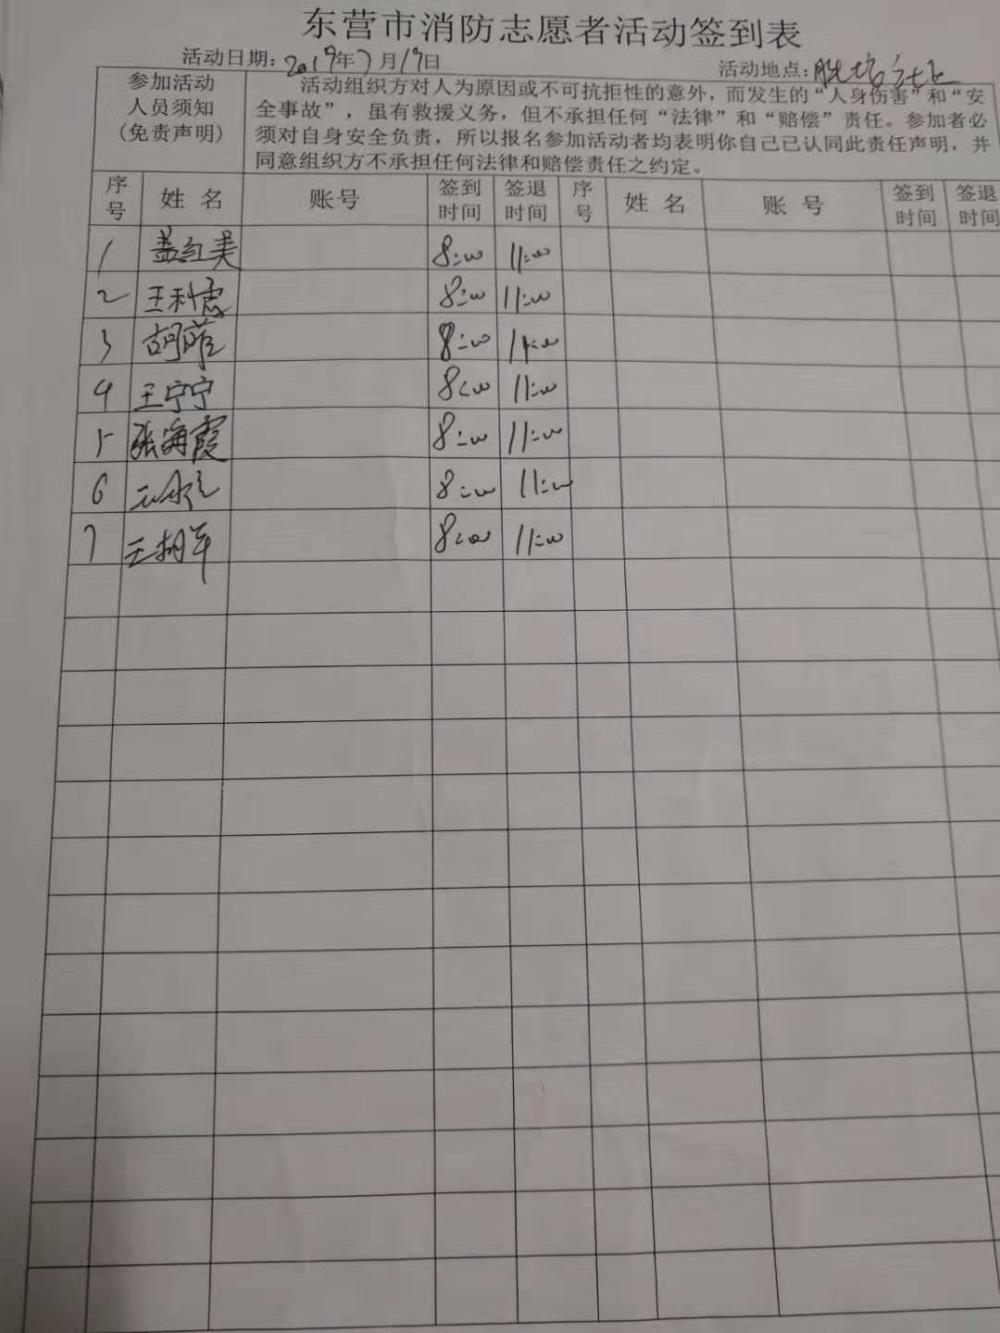 东营市消防志愿者活动签到表
活动日期:2019年7月19日 活动地点:社区
参加活动
人员须知
(免责声明)
活动组织方对人为原因或不可抗拒性的意外，而发生的“人身伤害”和“安
全事故”，虽有救援义务，但不承担任何“法律”和“赔偿”责任。参加者必
须对自身安全负责，所以报名参加活动者均表明你自己已认同此责任声明，并
同意组织方不承担任何法律和赔偿责任之约定。
序号 姓名 账号 签到时间 签退时间 序号 姓名 账号 签到时间 签退时间
1 盖红美 8:00 11:00
2 王利忠 8:00 11:00
3 胡萨 8:00 11:00
4 王宁宁 8:00 11:00
5 张海霞 8:00 11:00
6 8:00 11:00
7 王树军 8:00 11:00